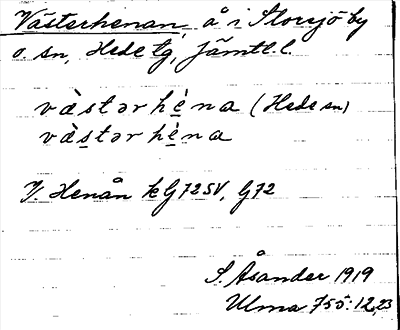 Västerhenan, å i Storsjö by
o. sn, Hede tg, Jämtl. l.
vàstərhèna (Hede sn)
vàstərhèna
V. Henån k G 72 SV, G 72
S. Åsander 1919
Ulma 755:12,23